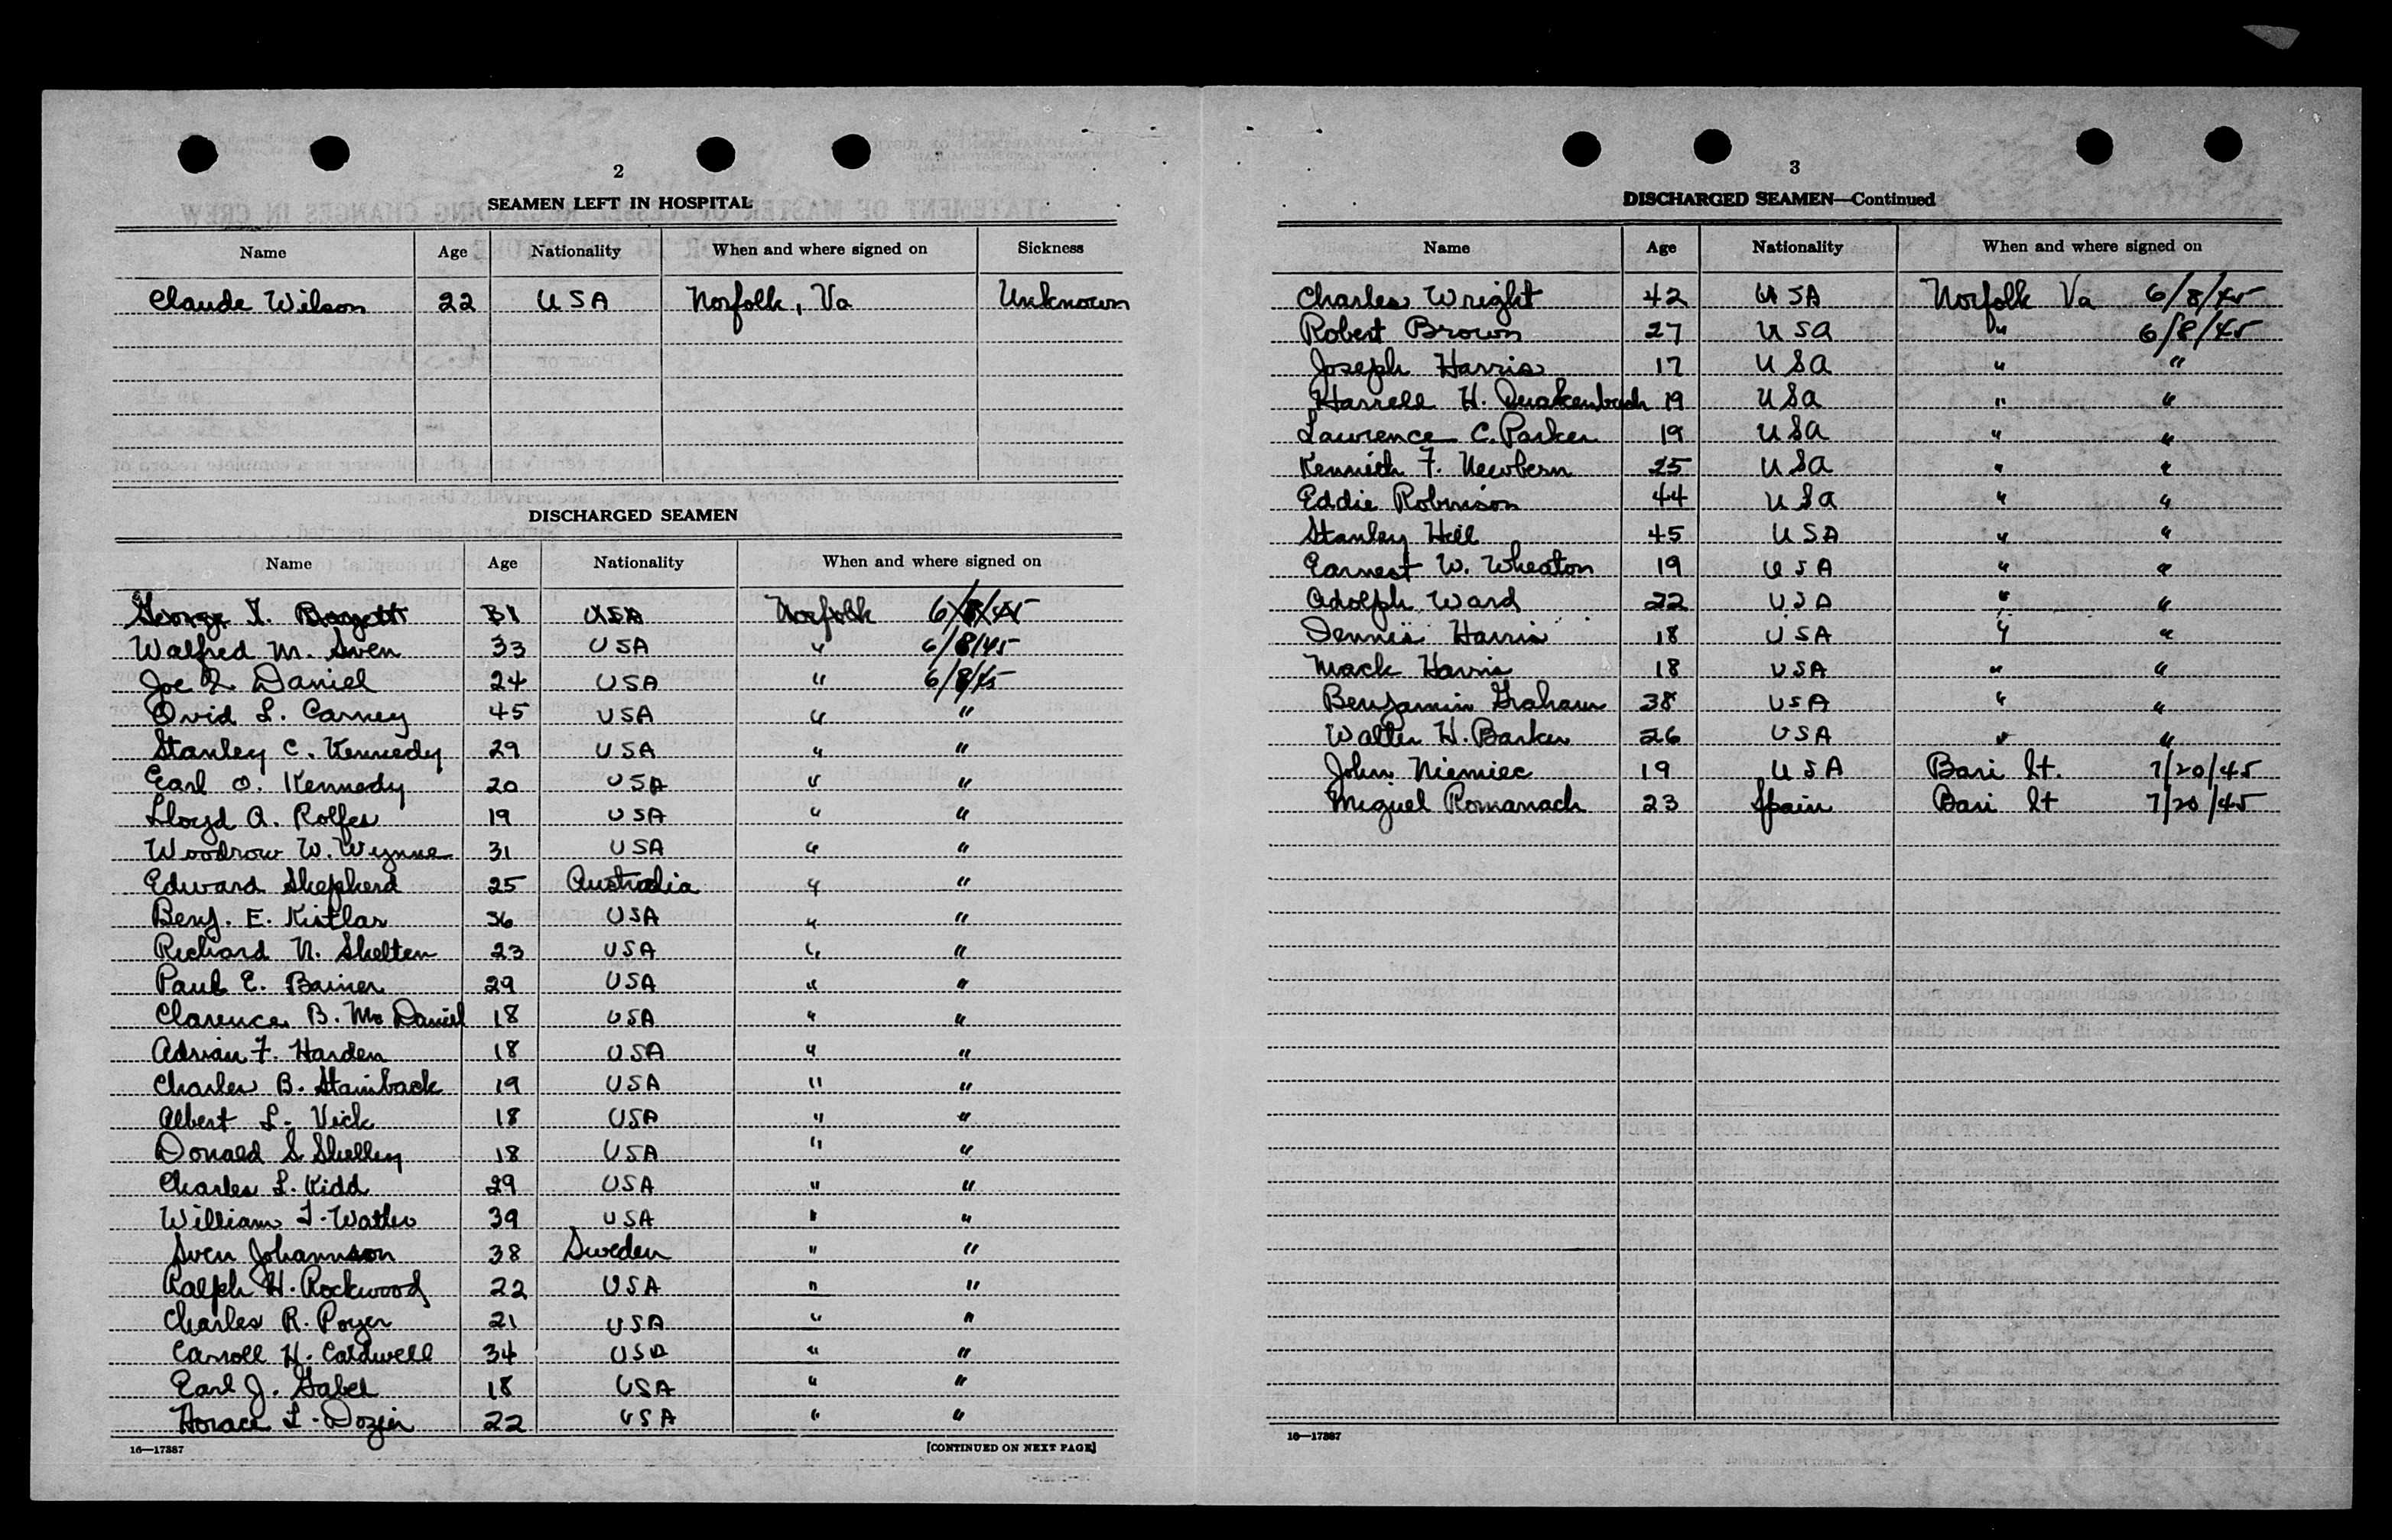 2
SEAMEN LEFT IN HOSPITAL
Name Age Nationality When and where signed on Sickness
Claude Wilson 22 USA Norfolk, Va Unknown
DISCHARGED SEAMEN
Name Age Nationality When and where signed on
George T. 31 USA Norfolk 6/8/45
Walfred M. Sven 33 USA " 6/8/45
Joe Daniel 24 USA " 6/8/45
Ovid L. Carney 45 USA " "
Stanley C. Kennedy 29 USA " "
Earl O. Kennedy 20 USA " "
Lloyd A. Rolfes 19 USA " "
Woodrow W. Wynne 31 USA " "
Edward Shepherd 25 Australia " "
Benj. E. Kistlar 36 USA " "
Richard N. Shelten 23 USA " "
Paul E. Bainer 29 USA " "
Clarence B. Mc Daniel 18 USA " "
Adrian F. Harden 18 USA " "
Charles B. Stainback 19 USA " "
Albert L. Vick 18 USA " "
Donald S Shelley 18 USA " "
Charles L. Kidd 29 USA " "
William T. 39 USA " "
Sven Johannson 38 Sweden " "
Ralph H. Rockwood 22 USA " "
Charles R. Poyer 21 USA " "
Carroll H. Caldwell 34 USA " "
Earl J. Gabel 18 USA " "
Horace L. Dozier 22 USA " "
16—17387 [CONTINUED ON NEXT PAGE]
3
DISCHARGED SEAMEN—Continued
Name Age Nationality When and where signed on
Charles Wright 42 USA Norfolk Va 6/8/45
Robert Brown 27 USA " 6/8/45
Joseph Harris 17 USA " "
Harrell H. Quakenbush 19 USA " "
Lawrence C. Parker 19 USA " "
Kenneth F. Newbern 25 USA " "
Eddie Robinson 44 USA " "
Stanley Hill 45 USA " "
Earnest W. Wheaton 19 USA " "
Adolph Ward 22 USA " "
Dennis Harris 18 USA " "
Mack Harris 18 USA " "
Benjamin Graham 38 USA " "
Walter H. Barker 26 USA " "
John Niemiec 19 USA Bari It. 7/20/45
Miguel Romanach 23 Spain Bari It 7/20/45
16—17387